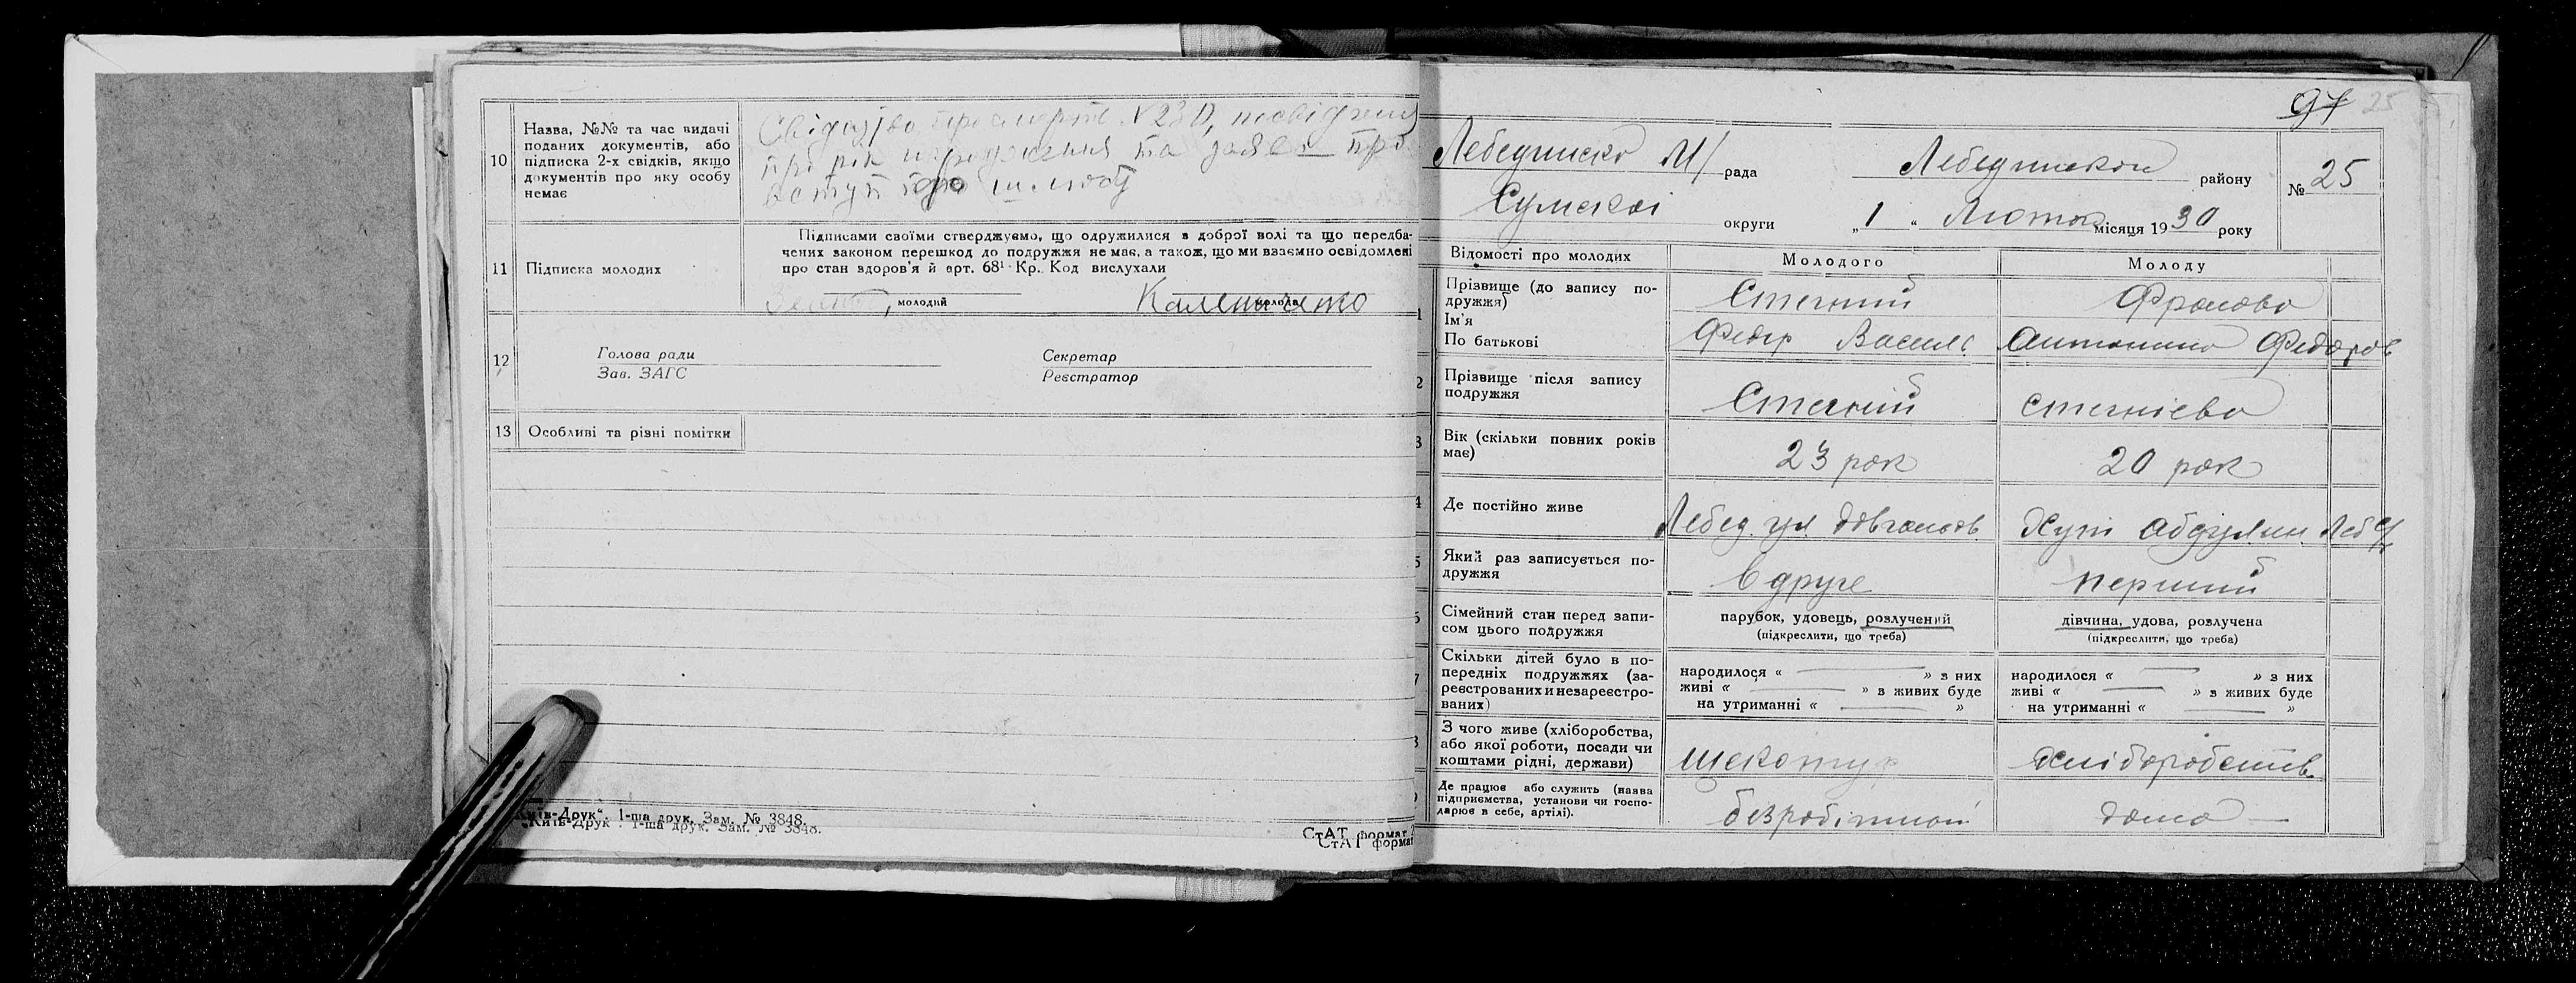 10
Назва, №№ та час видачі
поданих документів, або
підписка 2-х свідків, якщо
документів про яку особу
немає
про рік народження та заява про
вступ
11
Підписка молодих
Підписами своїми стверджуємо, що одружилися з доброї волі та що передба-
чених законом перешкод до подружжя не має, а також, що ми взаємно освідомлені
про стан здоров'я й арт. 68¹ Кр. Код вислухали
молодий
молода
12
Голова ради
Зав. ЗАГС
Секретар
Реєстратор
13
Особливі та різні помітки
"Київ-Друк". 1-ша друк. Зам. № 3848.
"Київ-Друк". 1-ша друк. Зам. № 3848.
СтАТ формат
СтАТ формат
97 25
Лебединско М/ рада
Лебединскои району
№ 25
Сумскої округи
„1" Лютого місяця 1930 року
Відомості про молодих
Молодого
Молоду
1
Прізвище (до запису по-
дружжя)
Ім'я
По батькові
Стегний
Фролова
Федір Василь.
Антонина Федоров
2
Прізвище після запису
подружжя
Стегний
Стегнієва
3
Вік (скільки повних років
має)
23 рок
20 рок
4
Де постійно живе
Лебед. вул. Довгалівк
Хут. Леб
5
Який раз записується по-
дружжя
вдруге
перший
6
Сімейний стан перед запи-
сом цього подружжя
парубок, удовець, розлучений
(підкреслити, що треба)
дівчина, удова, розлучена
(підкреслити, що треба)
7
Скільки дітей було в по-
передніх подружжях (за-
реєстрованих и незареєстро-
ваних)
народилося « » з них
живі « » з живих буде
на утриманні « »
народилося « » з них
живі « » з живих буде
на утриманні « »
8
З чого живе (хліборобства,
або якої роботи, посади чи
коштами рідні, держави)
щекатур
хліборобств.
9
Де працює або служить (назва
підприємства, установи чи госпо-
дарює в себе, артілі).
безробітний
дома